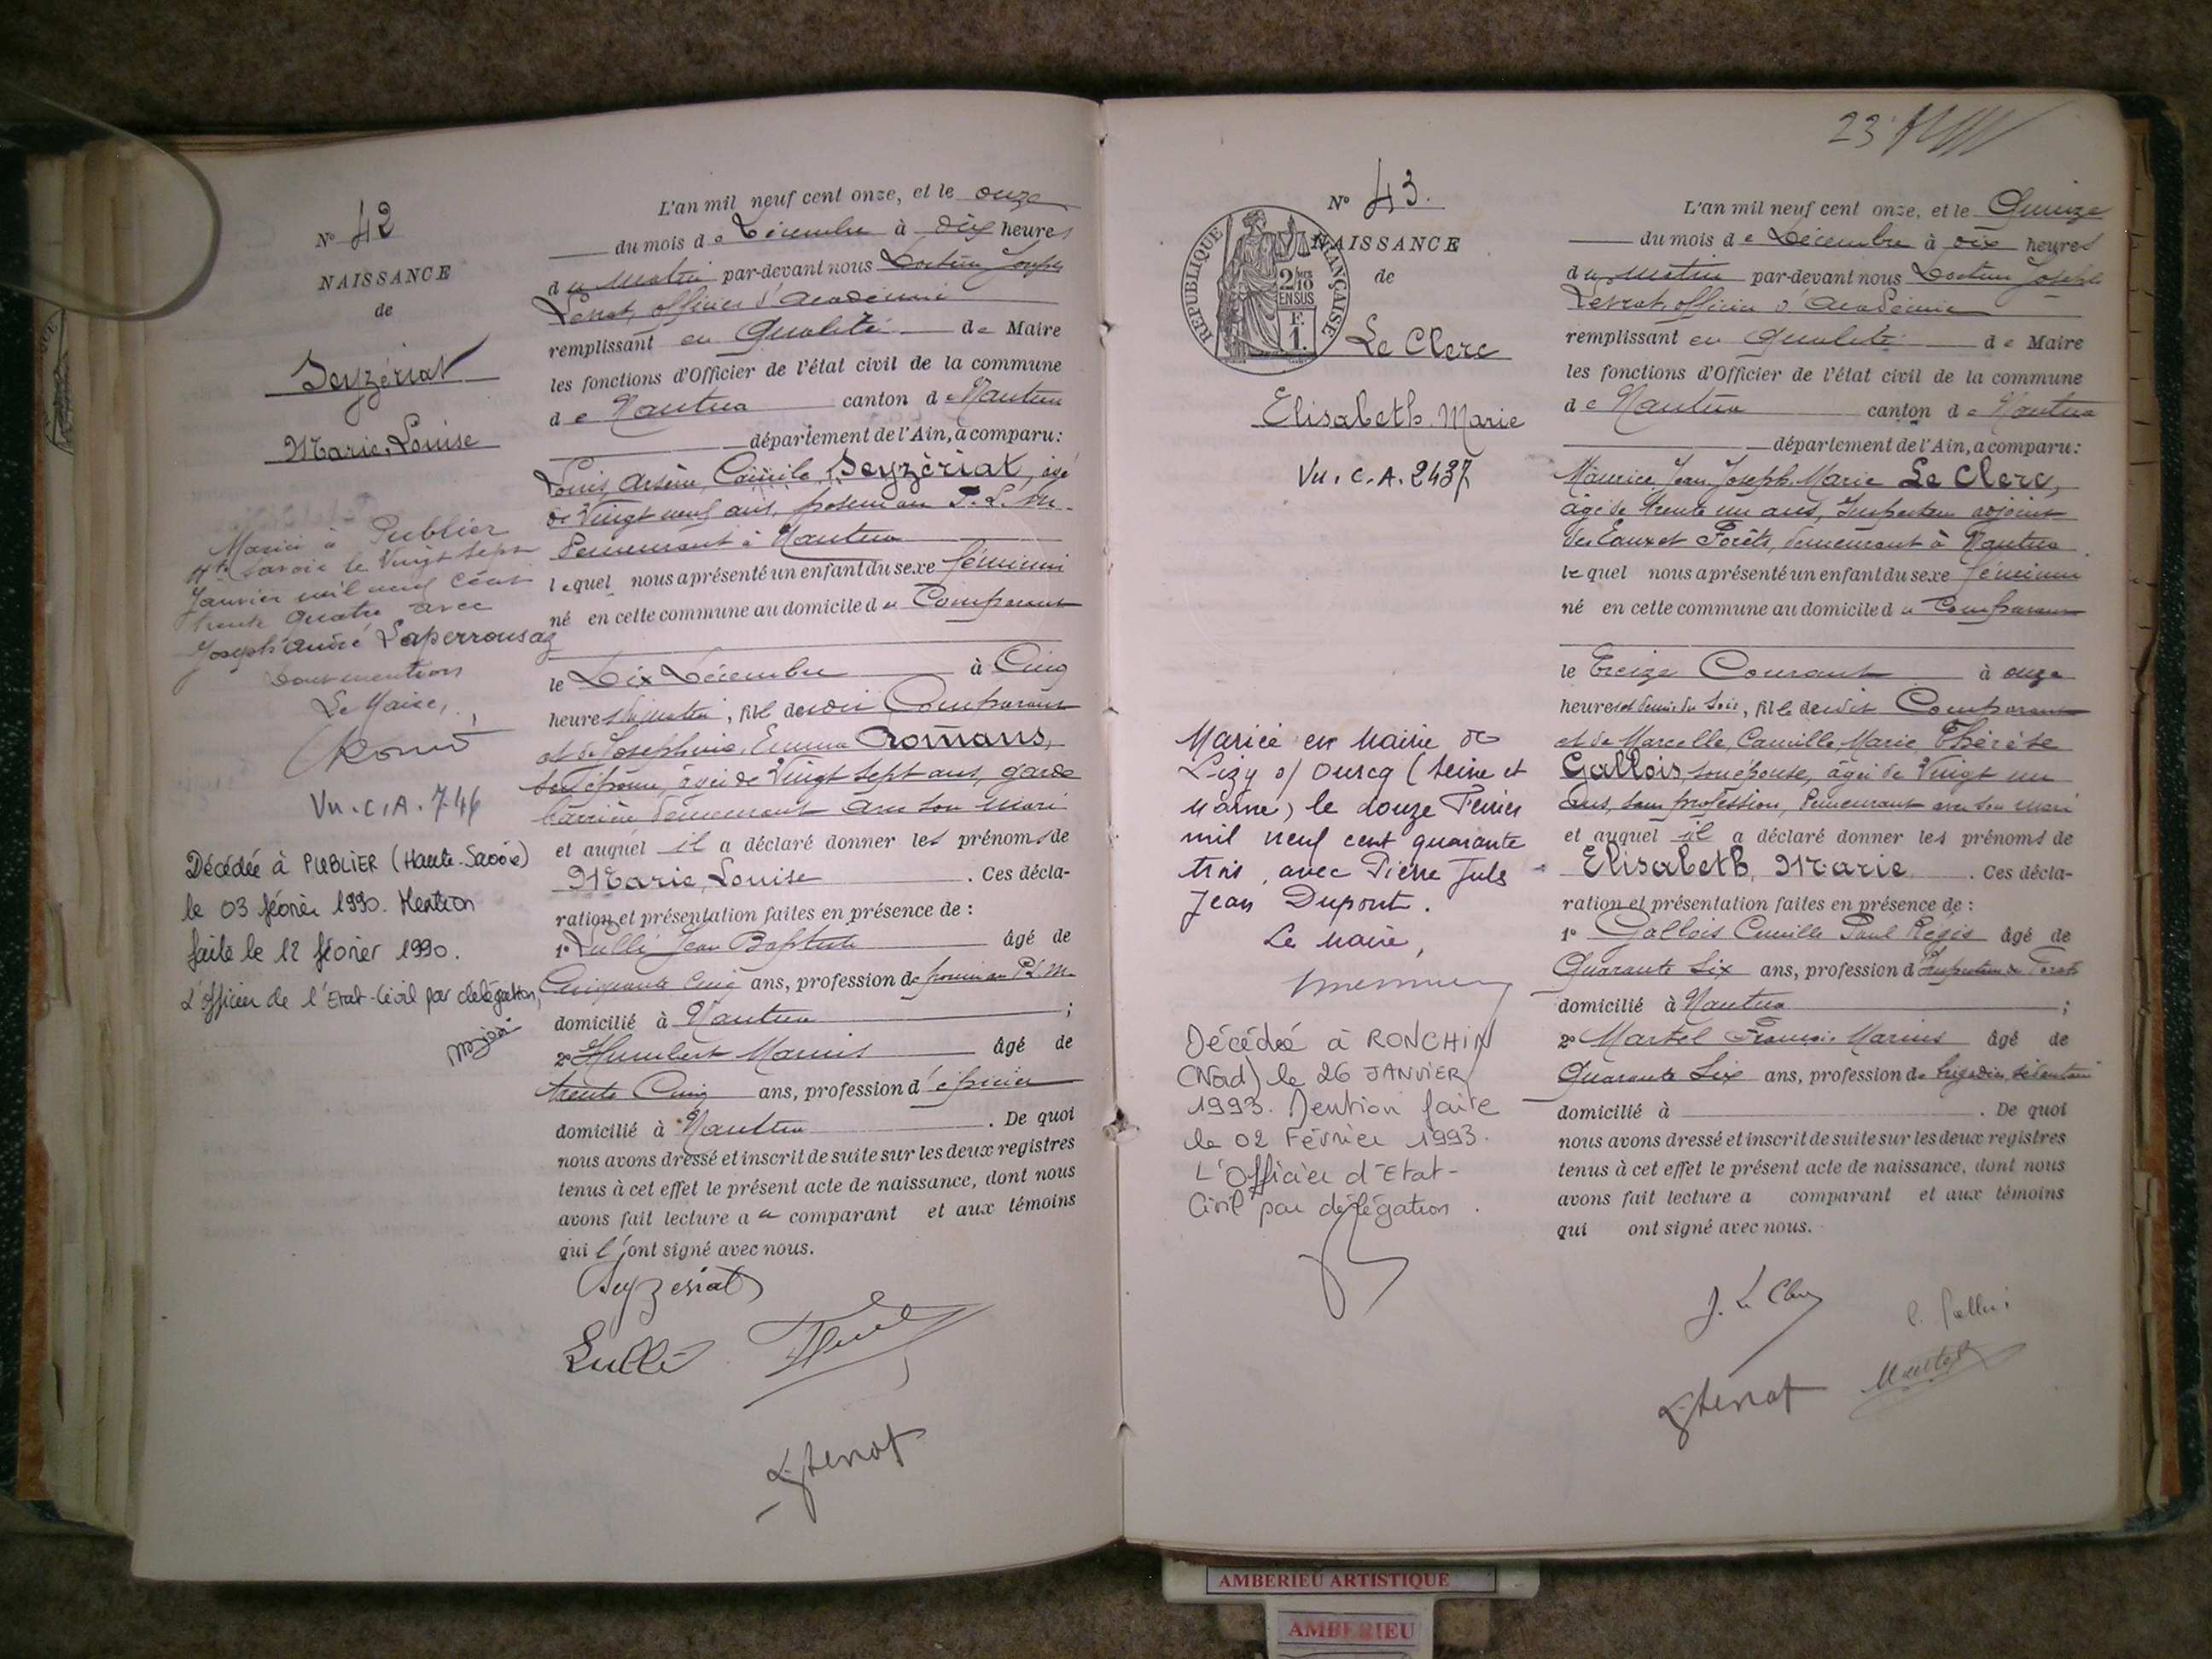 N° 42
NAISSANCE
de
Seyzériat
Marie, Louise
Marié à Publier
Hte Savoie le Vingt sept
Janvier mil neuf cent
trente quatre avec
Joseph André Laperrousaz
Dont mention
Le Maire,
Vu. C.A. 746
Décédée à PUBLIER (Haute-Savoie)
le 03 février 1990. Mention
faite le 12 février 1990.
L'officier de l'Etat-Civil par délégation,
L'an mil neuf cent onze, et le onze
du mois de Décembre à dix heures
du matin par-devant nous Docteur Joseph
Levrat, officier d'académie
remplissant en qualité de Maire
les fonctions d'Officier de l'état civil de la commune
de Nantua canton de Nantua
département de l'Ain, a comparu:
Louis, Arsène, Camile, Seyzériat, âgé
de Vingt neuf ans, poseur au P. L. M.
Demeurant à Nantua
lequel nous a présenté un enfant du sexe féminin
né en cette commune au domicile du Comparant
le Dix Décembre à Cinq
heures du matin, fille dudit Comparant
et de Joséphine, Emma Romans,
son épouse, âgée de Vingt sept ans, garde
barrière demeurant avec son mari
et auquel il a déclaré donner les prénoms de
Marie, Louise. Ces décla-
ration et présentation faites en présence de:
1° Lulli Jean Baptiste âgé de
Cinquante Cinq ans, profession de poseur au P.L.M.
domicilié à Nantua;
2° Humbert Marius âgé de
trente Cinq ans, profession d'épicier
domicilié à Nantua. De quoi
nous avons dressé et inscrit de suite sur les deux registres
tenus à cet effet le présent acte de naissance, dont nous
avons fait lecture au comparant et aux témoins
qui l'ont signé avec nous.
Seyzeriat
Lulli
Levrat
23
N° 43.
REPUBLIQUE FRANÇAISE
2/10 EN SUS
F. 1.
NAISSANCE
de
Le Clerc
Elisabeth Marie
Vu. C.A. 2437
Mariée en Mairie de
Lizy s/ Ourcq (Seine et
Marne) le douze Février
mil neuf cent quarante
trois, avec Pierre Jules
Jean Dupont.
Le Maire,
Décédée à RONCHIN
(Nord) le 26 JANVIER
1993. Mention faite
le 02 Février 1993.
L'Officier d'Etat-
Civil par délégation.
L'an mil neuf cent onze, et le Quinze
du mois de Décembre à dix heures
du matin par-devant nous Docteur Joseph
Levrat, officier d'académie
remplissant en qualité de Maire
les fonctions d'Officier de l'état civil de la commune
de Nantua canton de Nantua
département de l'Ain, a comparu:
Maurice, Jean, Joseph, Marie Le Clerc,
âgé de trente un ans, Inspecteur adjoint
des Eaux et Forêts, demeurant à Nantua
lequel nous a présenté un enfant du sexe féminin
né en cette commune au domicile du Comparant
le Treize Courant à onze
heures et demie du soir, fille dudit Comparant
et de Marcelle, Camille Marie Thérèse
Gallois, son épouse, âgée de Vingt un
ans, sans profession, demeurant avec son mari
et auquel il a déclaré donner les prénoms de
Elisabeth, Marie. Ces décla-
ration et présentation faites en présence de:
1° Gallois Camille Paul Régis âgé de
Quarante Six ans, profession d'Inspecteur de Forêts
domicilié à Nantua;
2° Martel François Marius âgé de
Quarante Six ans, profession de brigadier sédentaire
domicilié à. De quoi
nous avons dressé et inscrit de suite sur les deux registres
tenus à cet effet le présent acte de naissance, dont nous
avons fait lecture a comparant et aux témoins
qui ont signé avec nous.
J. Le Clerc
C. Gallois
Levrat
Martel
AMBERIEU ARTISTIQUE
AMBERIEU